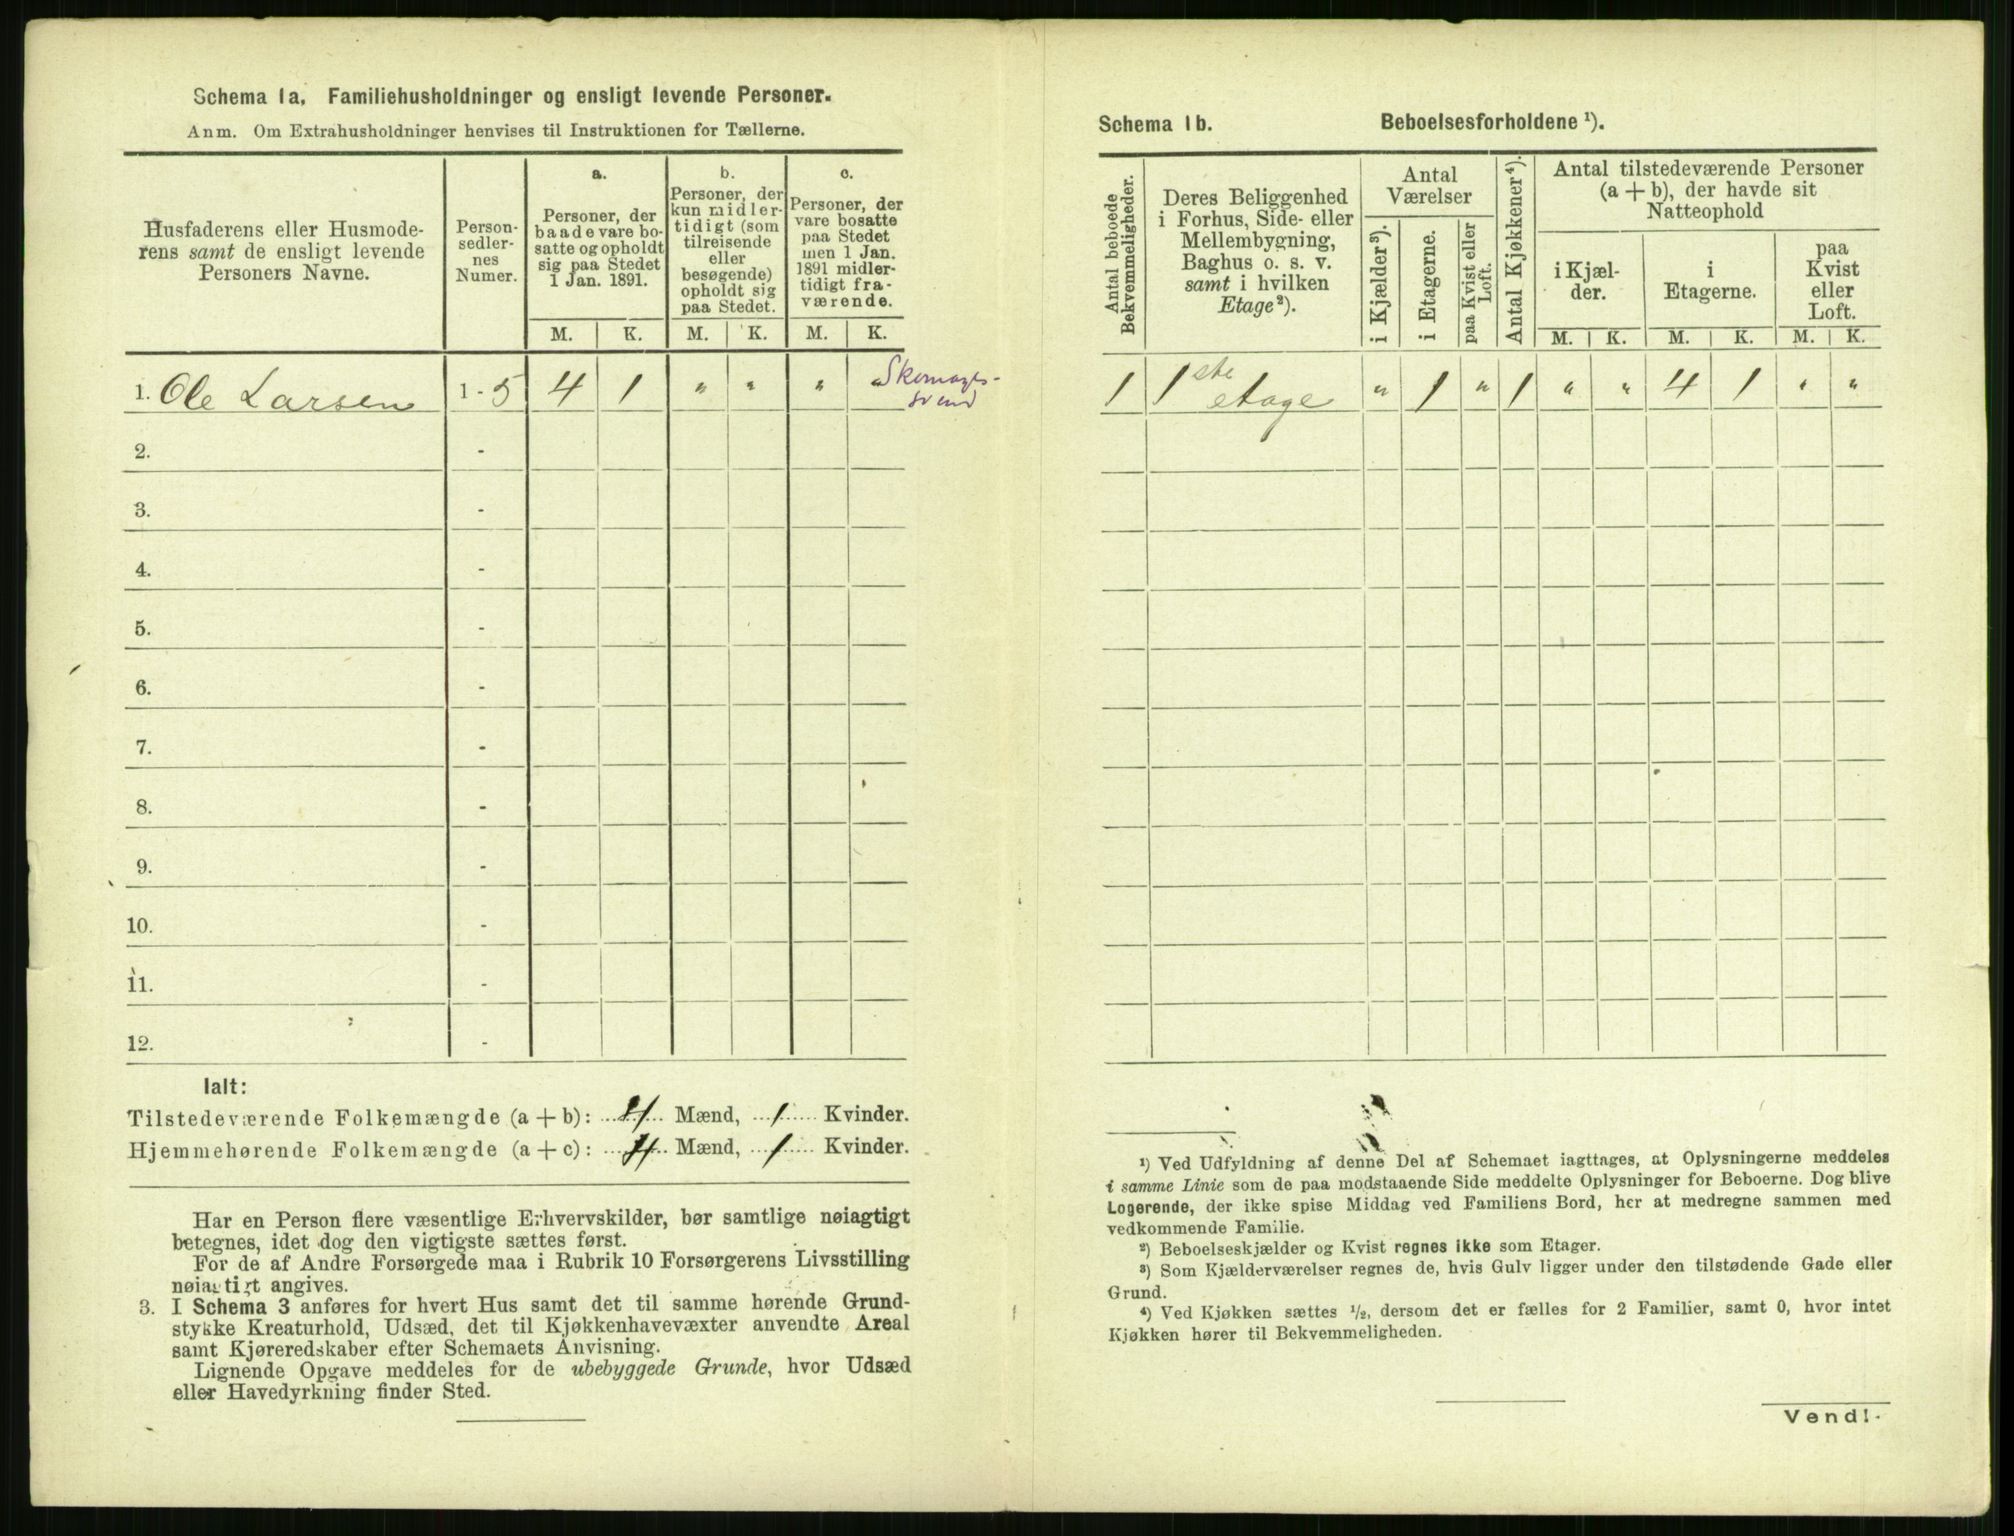 Schema 1a. Familiehusholdninger og ensligt levende Personer.
Anm. Om Extrahusholdninger henvises til Instruktionen for Tællerne.
Husfaderens eller Husmode-
rens samt de ensligt levende
Personers Navne.
Person-
sedler-
nes
Numer.
a.
Personer, der
baade vare bo-
satte og opholdt
sig paa Stedet
1 Jan. 1891.
b.
Personer, der
kun midler-
tidigt (som
tilreisende
eller
besøgende)
opholdt sig
paa Stedet.
c.
Personer, der
vare bosatte
paa Stedet
men 1 Jan.
1891 midler-
tidigt fra-
værende.
M. K. M. K. M. K.
1. Ole Larsen 1 - 5 4 1 " " " " Skomager-
svend
2. -
3. -
4. -
5. -
6. -
7. -
8. -
9. -
10. -
11. -
12. -
Ialt:
Tilstedeværende Folkemængde (a + b): 4 Mænd, 1 Kvinder.
Hjemmehørende Folkemængde (a + c): 4 Mænd, 1 Kvinder.
Har en Person flere væsentlige Erhvervskilder, bør samtlige nøiagtigt
betegnes, idet dog den vigtigste sættes først.
For de af Andre Forsørgede maa i Rubrik 10 Forsørgerens Livsstilling
nøiagtigt angives.
3. I Schema 3 anføres for hvert Hus samt det til samme hørende Grund-
stykke Kreaturhold, Udsæd, det til Kjøkkenhavevæxter anvendte Areal
samt Kjøreredskaber efter Schemaets Anvisning.
Lignende Opgave meddeles for de ubebyggede Grunde, hvor Udsæd
eller Havedyrkning finder Sted.
Schema 1b. Beboelsesforholdene ¹).
Antal beboede
Bekvemmeligheder.
Deres Beliggenhed
i Forhus, Side- eller
Mellembygning,
Baghus o. s. v.
samt i hvilken
Etage²).
Antal
Værelser
i Kjælder³).
i Etagerne.
paa Kvist eller
Loft.
Antal Kjøkkener⁴).
Antal tilstedeværende Personer
(a + b), der havde sit
Natteophold
i Kjæl-
der.
i
Etagerne.
paa
Kvist
eller
Loft.
M. K. M. K. M. K.
1 1ste etage " 1 " 1 " " 4 1 " "
¹) Ved Udfyldning af denne Del af Schemaet iagttages, at Oplysningerne meddeles
i samme Linie som de paa modstaaende Side meddelte Oplysninger for Beboerne. Dog blive
Logerende, der ikke spise Middag ved Familiens Bord, her at medregne sammen med
vedkommende Familie.
²) Beboelseskjælder og Kvist regnes ikke som Etager.
³) Som Kjælderværelser regnes de, hvis Gulv ligger under den tilstødende Gade eller
Grund.
⁴) Ved Kjøkken sættes ½, dersom det er fælles for 2 Familier, samt 0, hvor intet
Kjøkken hører til Bekvemmeligheden.
Vend!